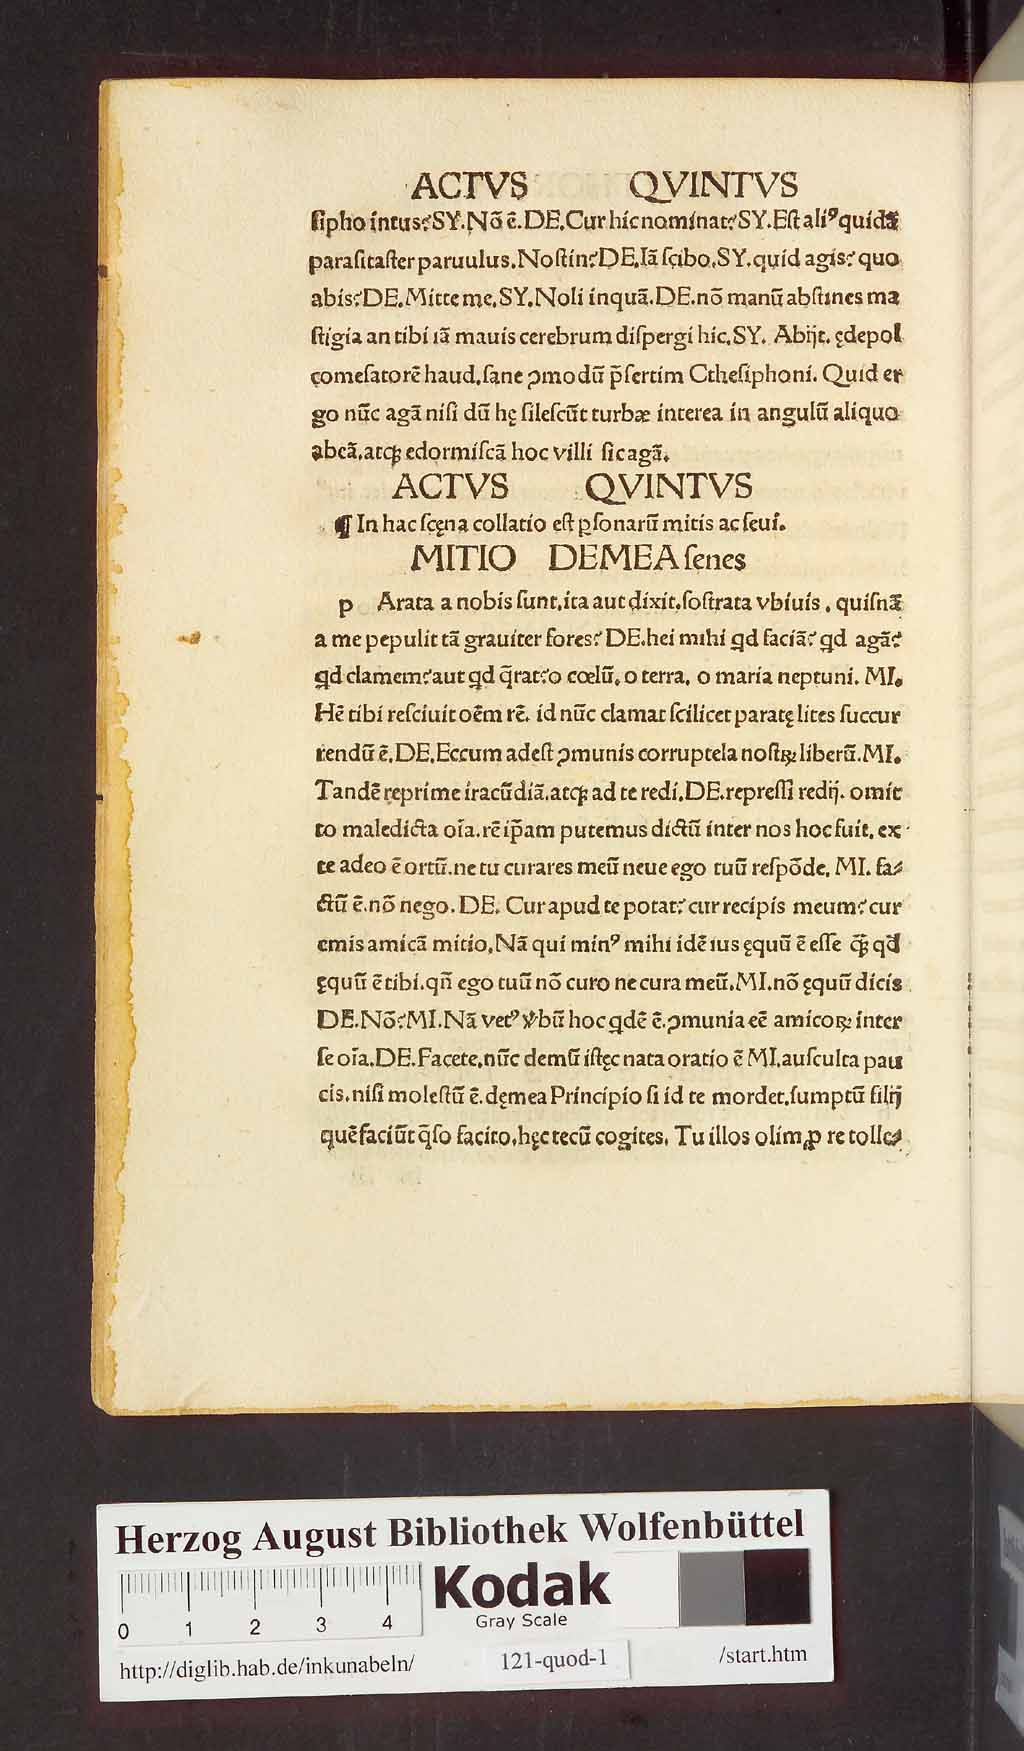 ACTVS QVINTVS
ſipho intus? SY. Nõ ẽ. DE. Cur hic nominat? SY. Eſt aliꝰ quidã
paraſitaſter paruulus. Noſtin? DE. Iã ſcibo. SY. quid agis? quo
abis? DE. Mitte me. SY. Noli inquã. DE. nõ manũ abſtines ma
ſtigia an tibi iã mauis cerebrum diſpergi hic. SY. Abijt. ędepol
comeſatorẽ haud. ſane ꝯmodũ p̃ſertim Ctheſiphoni. Quid er
go nũc agã niſi dũ hę ſileſcũt turbæ interea in angulũ aliquo
abeã. atqꝫ edormiſcã hoc villi ſic agã.
ACTVS QVINTVS
¶ In hac ſcęna collatio eſt ꝑſonarũ mitis ac ſeui.
MITIO DEMEA ſenes
p Arata a nobis ſunt, ita aut dixit. ſoſtrata vbiuis. quiſnã
a me pepulit tã grauiter fores? DE. hei mihi qd faciã? qd agã?
qd clamem? aut qd q̃rat? o cœlũ. o terra. o maria neptuni. MI.
Hẽ tibi reſciuit oẽm rẽ. id nũc clamat ſcilicet paratę lites ſuccur
rendũ ẽ. DE. Eccum adeſt ꝯmunis corruptela noſtꝝ liberũ. MI.
Tandẽ reprime iracũdiã. atqꝫ ad te redi. DE. repreſſi redij. omit
to maledicta oĩa. rẽ ip̃am putemus dictũ inter nos hoc fuit. ex
te adeo ẽ ortũ. ne tu curares meũ neue ego tuũ reſpõde. MI. fa⸗
ctũ ẽ. nõ nego. DE. Cur apud te potat? cur recipis meum? cur
emis amicã mitio. Nã qui minꝰ mihi idẽ ius ęquũ ẽ eſſe qꝫ̃ qd̃
ęquũ ẽ tibi. qñ ego tuũ nõ curo ne cura meũ. MI. nõ ęquũ dicis
DE. Nõ? MI. Nã vetꝰ v̓bũ hoc qdẽ ẽ. ꝯmunia eẽ amicoꝝ inter
ſe oĩa. DE. Facete. nũc demũ iſtęc nata oratio ẽ MI. auſculta pau
cis. niſi moleſtũ ẽ. dęmea Principio ſi id te mordet. ſumptũ filij
quẽ faciũt q̃ſo facito. hęc tecũ cogites. Tu illos olim ꝓ re tolle⸗
Herzog August Bibliothek Wolfenbüttel
Kodak
Gray Scale
0 1 2 3 4
http://diglib.hab.de/inkunabeln/ 121-quod-1 /start.htm